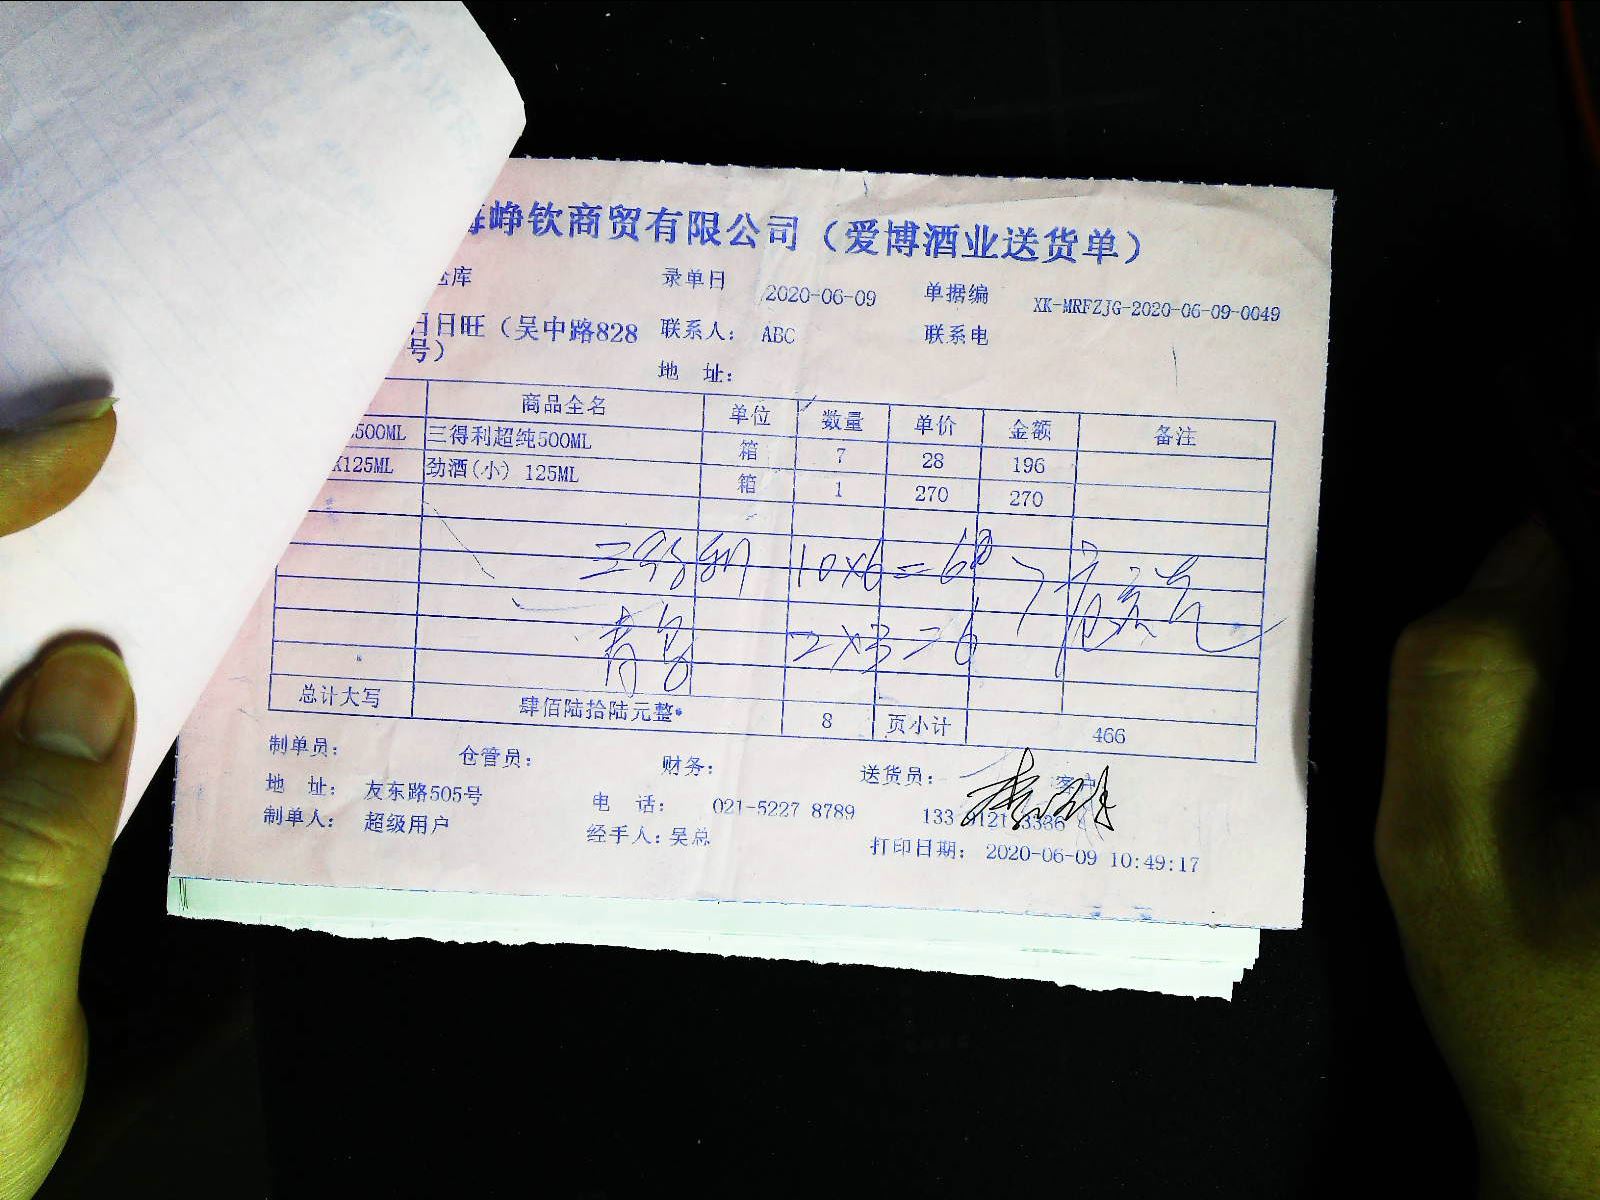 峥钦商贸有限公司（爱博酒业送货单）
仓库 录单日 2020-06-09 单据编 XK-MRFZJG-2020-06-09-0049
日日旺（吴中路828号） 联系人： ABC 联系电
地 址：
商品全名 单位 数量 单价 金额 备注
500ML 三得利超纯500ML 箱 7 28 196
X125ML 劲酒(小) 125ML 箱 1 270 270
三得利 10×6=60
2×3=6
总计大写 肆佰陆拾陆元整 8 页小计 466
制单员： 仓管员： 财务： 送货员： 客户
地 址： 友东路505号 电 话： 021-5227 8789
制单人： 超级用户 经手人：吴总 打印日期： 2020-06-09 10:49:17